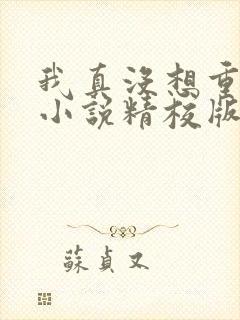 我真没想重
小说精校版
蘇貞又